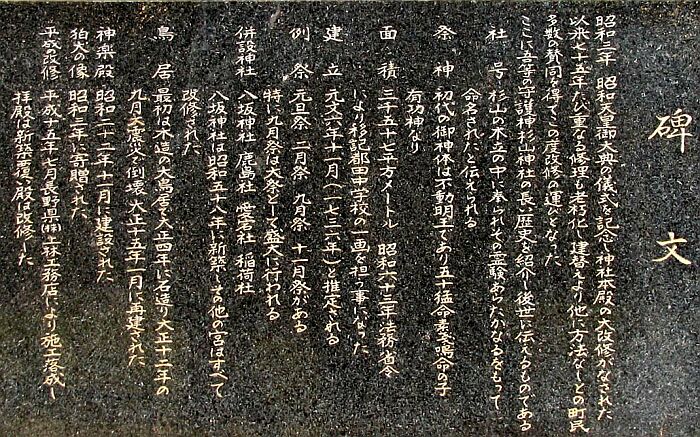 碑文
昭和三年 昭和天皇御大典の儀式を記念し神社本殿の大改修がなされた
以来七十五年たび重なる修理も老朽化し建替えより他に方法なしとの町民
多数の賛同を得てこの度改修の運びとなった
ここに吾等の守護神杉山神社の長い歴史を紹介し後世に伝えるものである
社号 杉山の木立の中に奉られその霊験あらたかなるをもって
命名されたと伝えられる
祭神 初代の御神体は不動明王であり五十猛命素戔嗚命の子
有功神なり
面積 三千五十七平方メートル 昭和六十三年法務省令
により 郡田中学校の一画を担う事になった
建立 元文六年十一月(一七二一年)と推定される
例祭 元旦祭 二月祭 九月祭 十一月祭がある
特に九月祭は大祭として盛大に行われる
併設神社 八坂神社 鹿島社 愛宕社 稲荷社
八坂神社は昭和五十八年に新築しその他の宮はすべて
改修された
鳥居 最初は木造の大鳥居で大正四年に石造り大正十二年の
九月大震災で倒壊 大正十五年一月に再建された
神楽殿 昭和二十二年十一月に建設された
狛犬の像 昭和二年に寄贈された
平成の改修 平成十五年七月長野県(株)上林工務店により施工落成し
拝殿は新築覆い殿は改修した